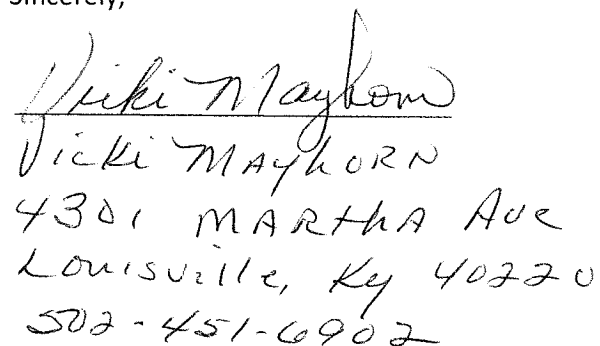 Sincerely,
Vicki Mayhorn
Vicki MAYHORN
4301 MARTHA Ave
Louisville, Ky 40220
502-451-6902